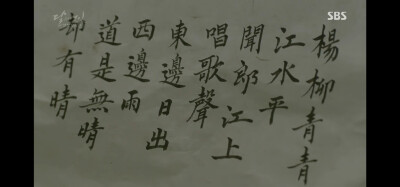 SBS
楊柳青青
江水平
聞郎江上
唱歌聲
東邊日出
西邊雨
道是無晴
却有晴